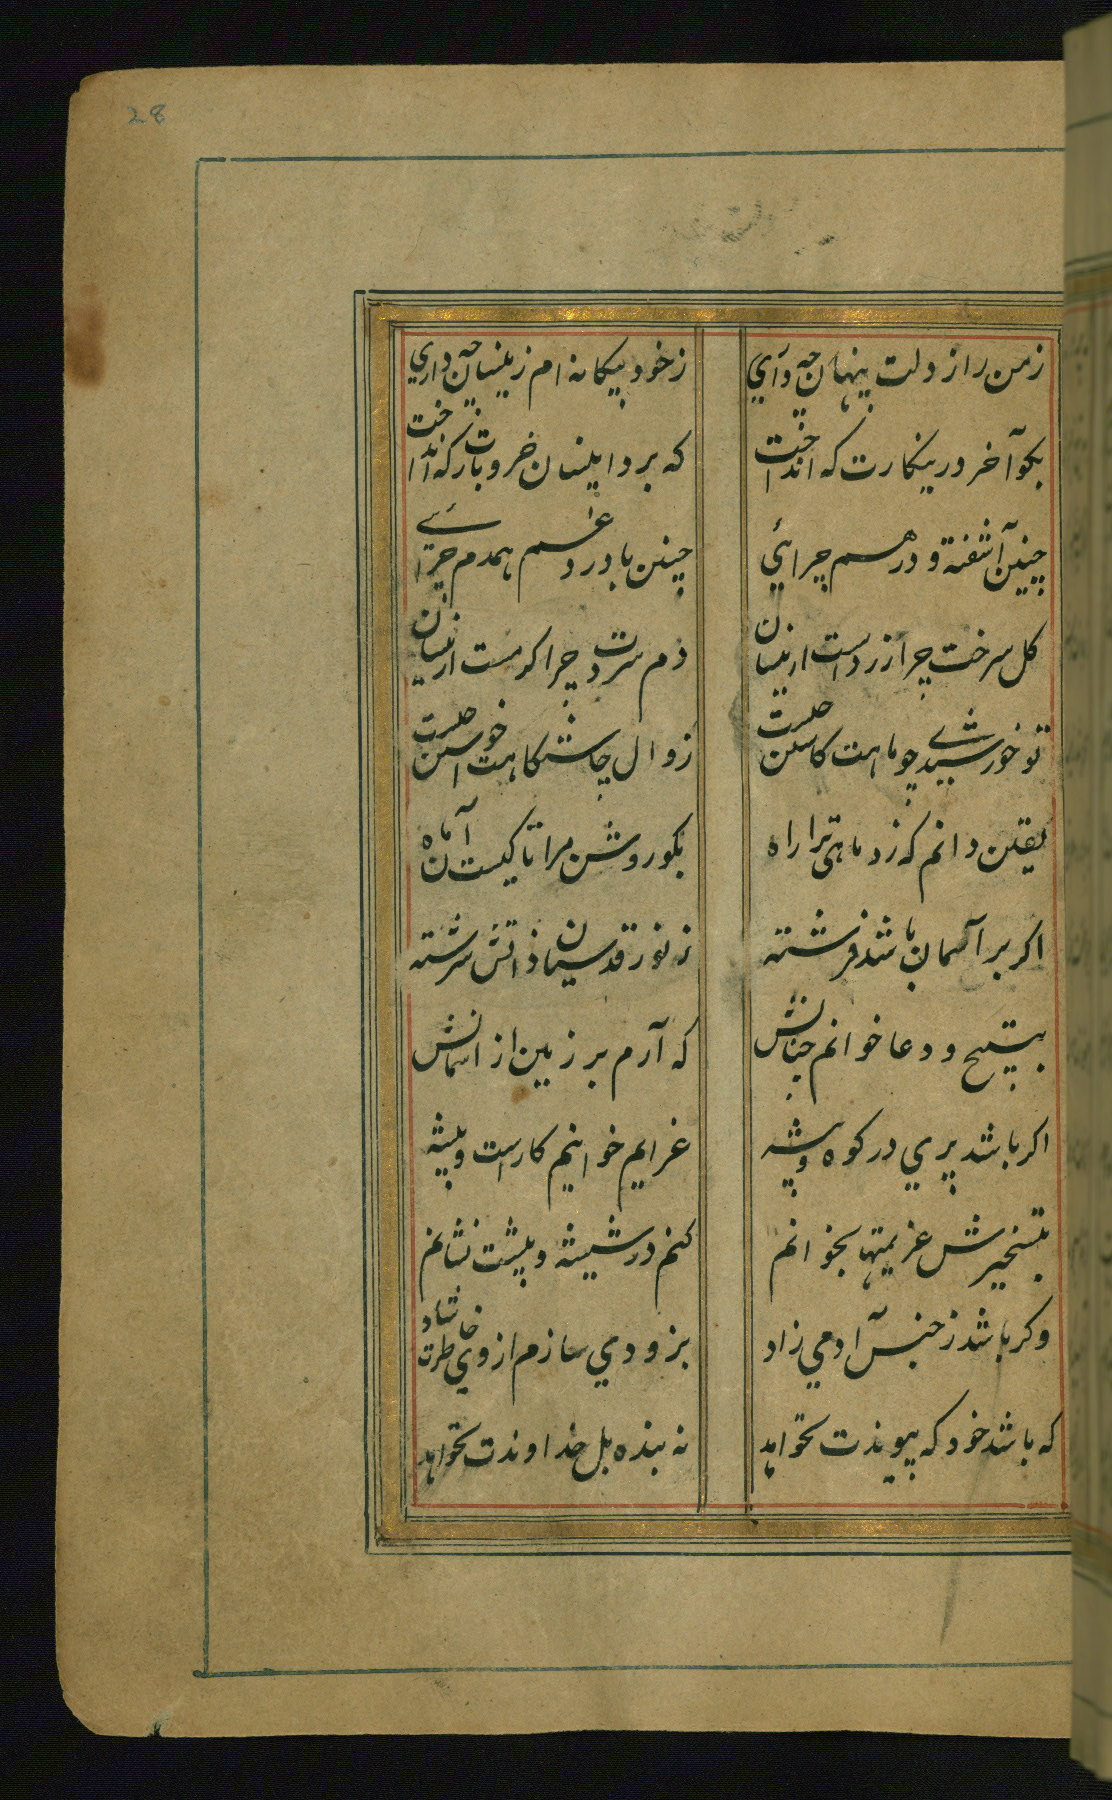 28
زمن راز دلت پنهان چه داري زخود بیکانه ام زینسان چه داري
بکو آخر درینکارت که انداخت که برد اینسان خروبارت که انداخت
چنین آشفته و درهم چرائي چنین با درد و غم همدم چرائے
کل سرخت چرا زردست ازینسان دم سردت چرا کرمست ازینسان
تو خورشیدے چو ماهت کاستن چیست زوال چاشتکاهت خواستن چیست
یقین دانم که زد ماهی ترا راه بکو روشن مرا تا کیست آن ماه
اکر بر آسمان باشد فرشته ز نور قدسیان ذاتش سرشته
بتسبیح و دعا خوانم چنانش که آرم بر زمین از آسمانش
اکر باشد پري در کوه و بیشه عزایم خوانیم کارست و پیشه
بتسخیرش عزیمتها بخوانم کنم در شیشه و پیشت نشانم
وکر باشد ز جنس آدمي زاد بزودي سازم از وي خاطرت شاد
که باشد خود که پیوندت نخواهد نه بنده بل خداوندت نخواهد